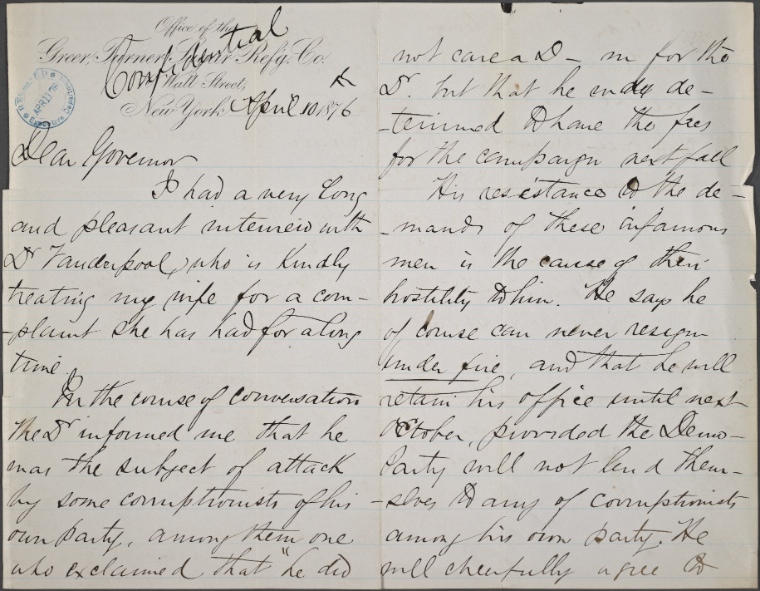 Office of the
Greer, Turner Sugar Ref'g. Co.
Confidential
Wall Street,
New York April 10 1876
APR 11 76
Dear Governor
I had a very long
and pleasant interview with
Dr Vanderpool, who is kindly
treating my wife for a com-
-plaint she has had for along
time.
In the course of conversation
the Dr informed me that he
was the subject of attack
by some corruptionists of his
own Party, among them one
who exclaimed that "he did
not care a D- m for the
Dr. but that he was de-
-termined to have the fees
for the campaign next fall
His resistance to the de-
-mands of these infamous
men is the cause of their
hostility to him. He says he
of course can never resign
under fire, and that he will
retain his office until next
October, provided the Demo-
Party will not lend them-
-selves to any of corruptionists
among his own party. He
will cheerfully agree to